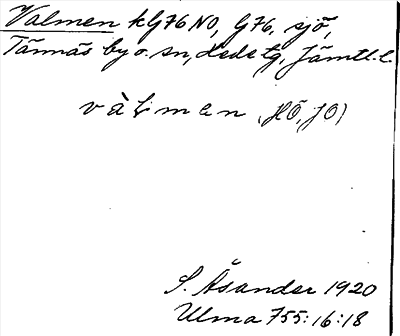 Valmen kG76 NO, G76, sjö,
Tännäs by o. sn, Hede tg, Jämtl. l.
vàḷmen (HÖ, JO)
S. Åsander 1920
Ulma 755:16:18